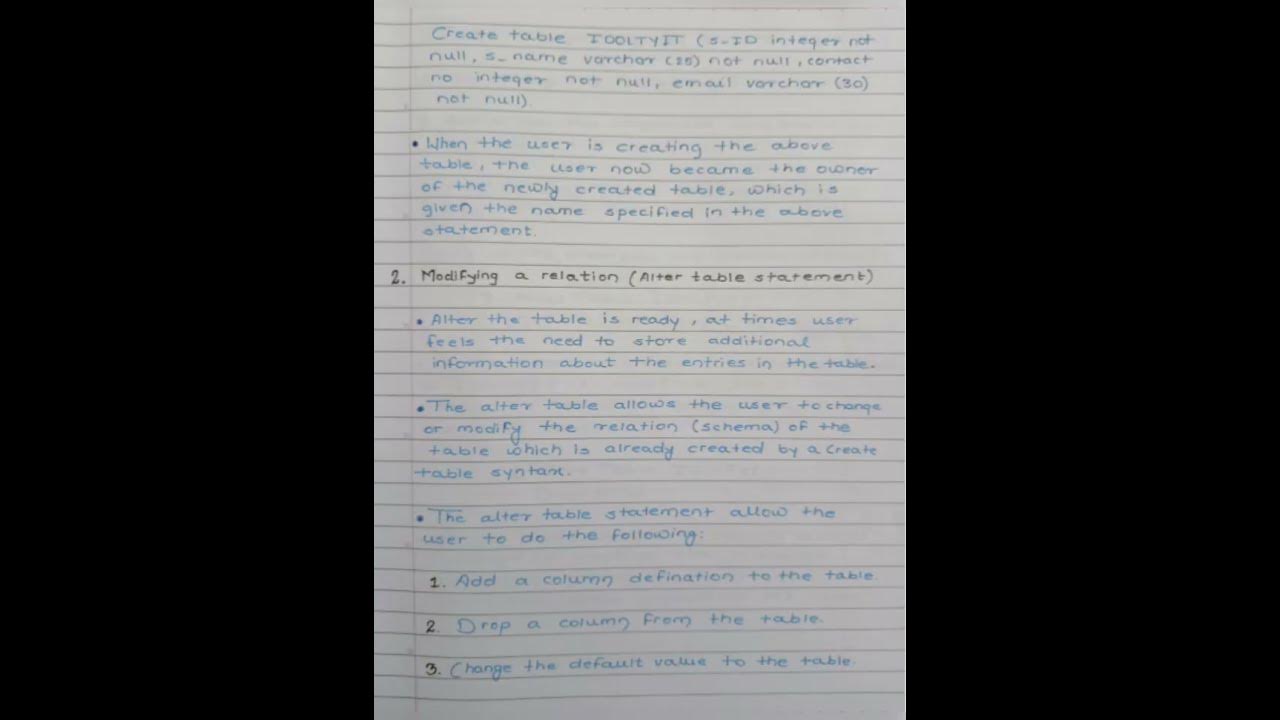 Create table TOOLTYIT (S-ID integer not
null, s_name varchar (20) not null, contact
no integer not null, email varchar (30)
not null)
• When the user is creating the above
table, the user now became the owner
of the newly created table, which is
given the name specified in the above
statement.
2. Modifying a relation (Alter table statement)
• Alter the table is ready, at times user
feels the need to store additional
information about the entries in the table.
• The alter table allows the user to change
or modify the relation (schema) of the
table which is already created by a create
table syntax.
• The alter table statement allow the
user to do the following:
1. Add a column defination to the table.
2. Drop a column from the table.
3. Change the default value to the table.